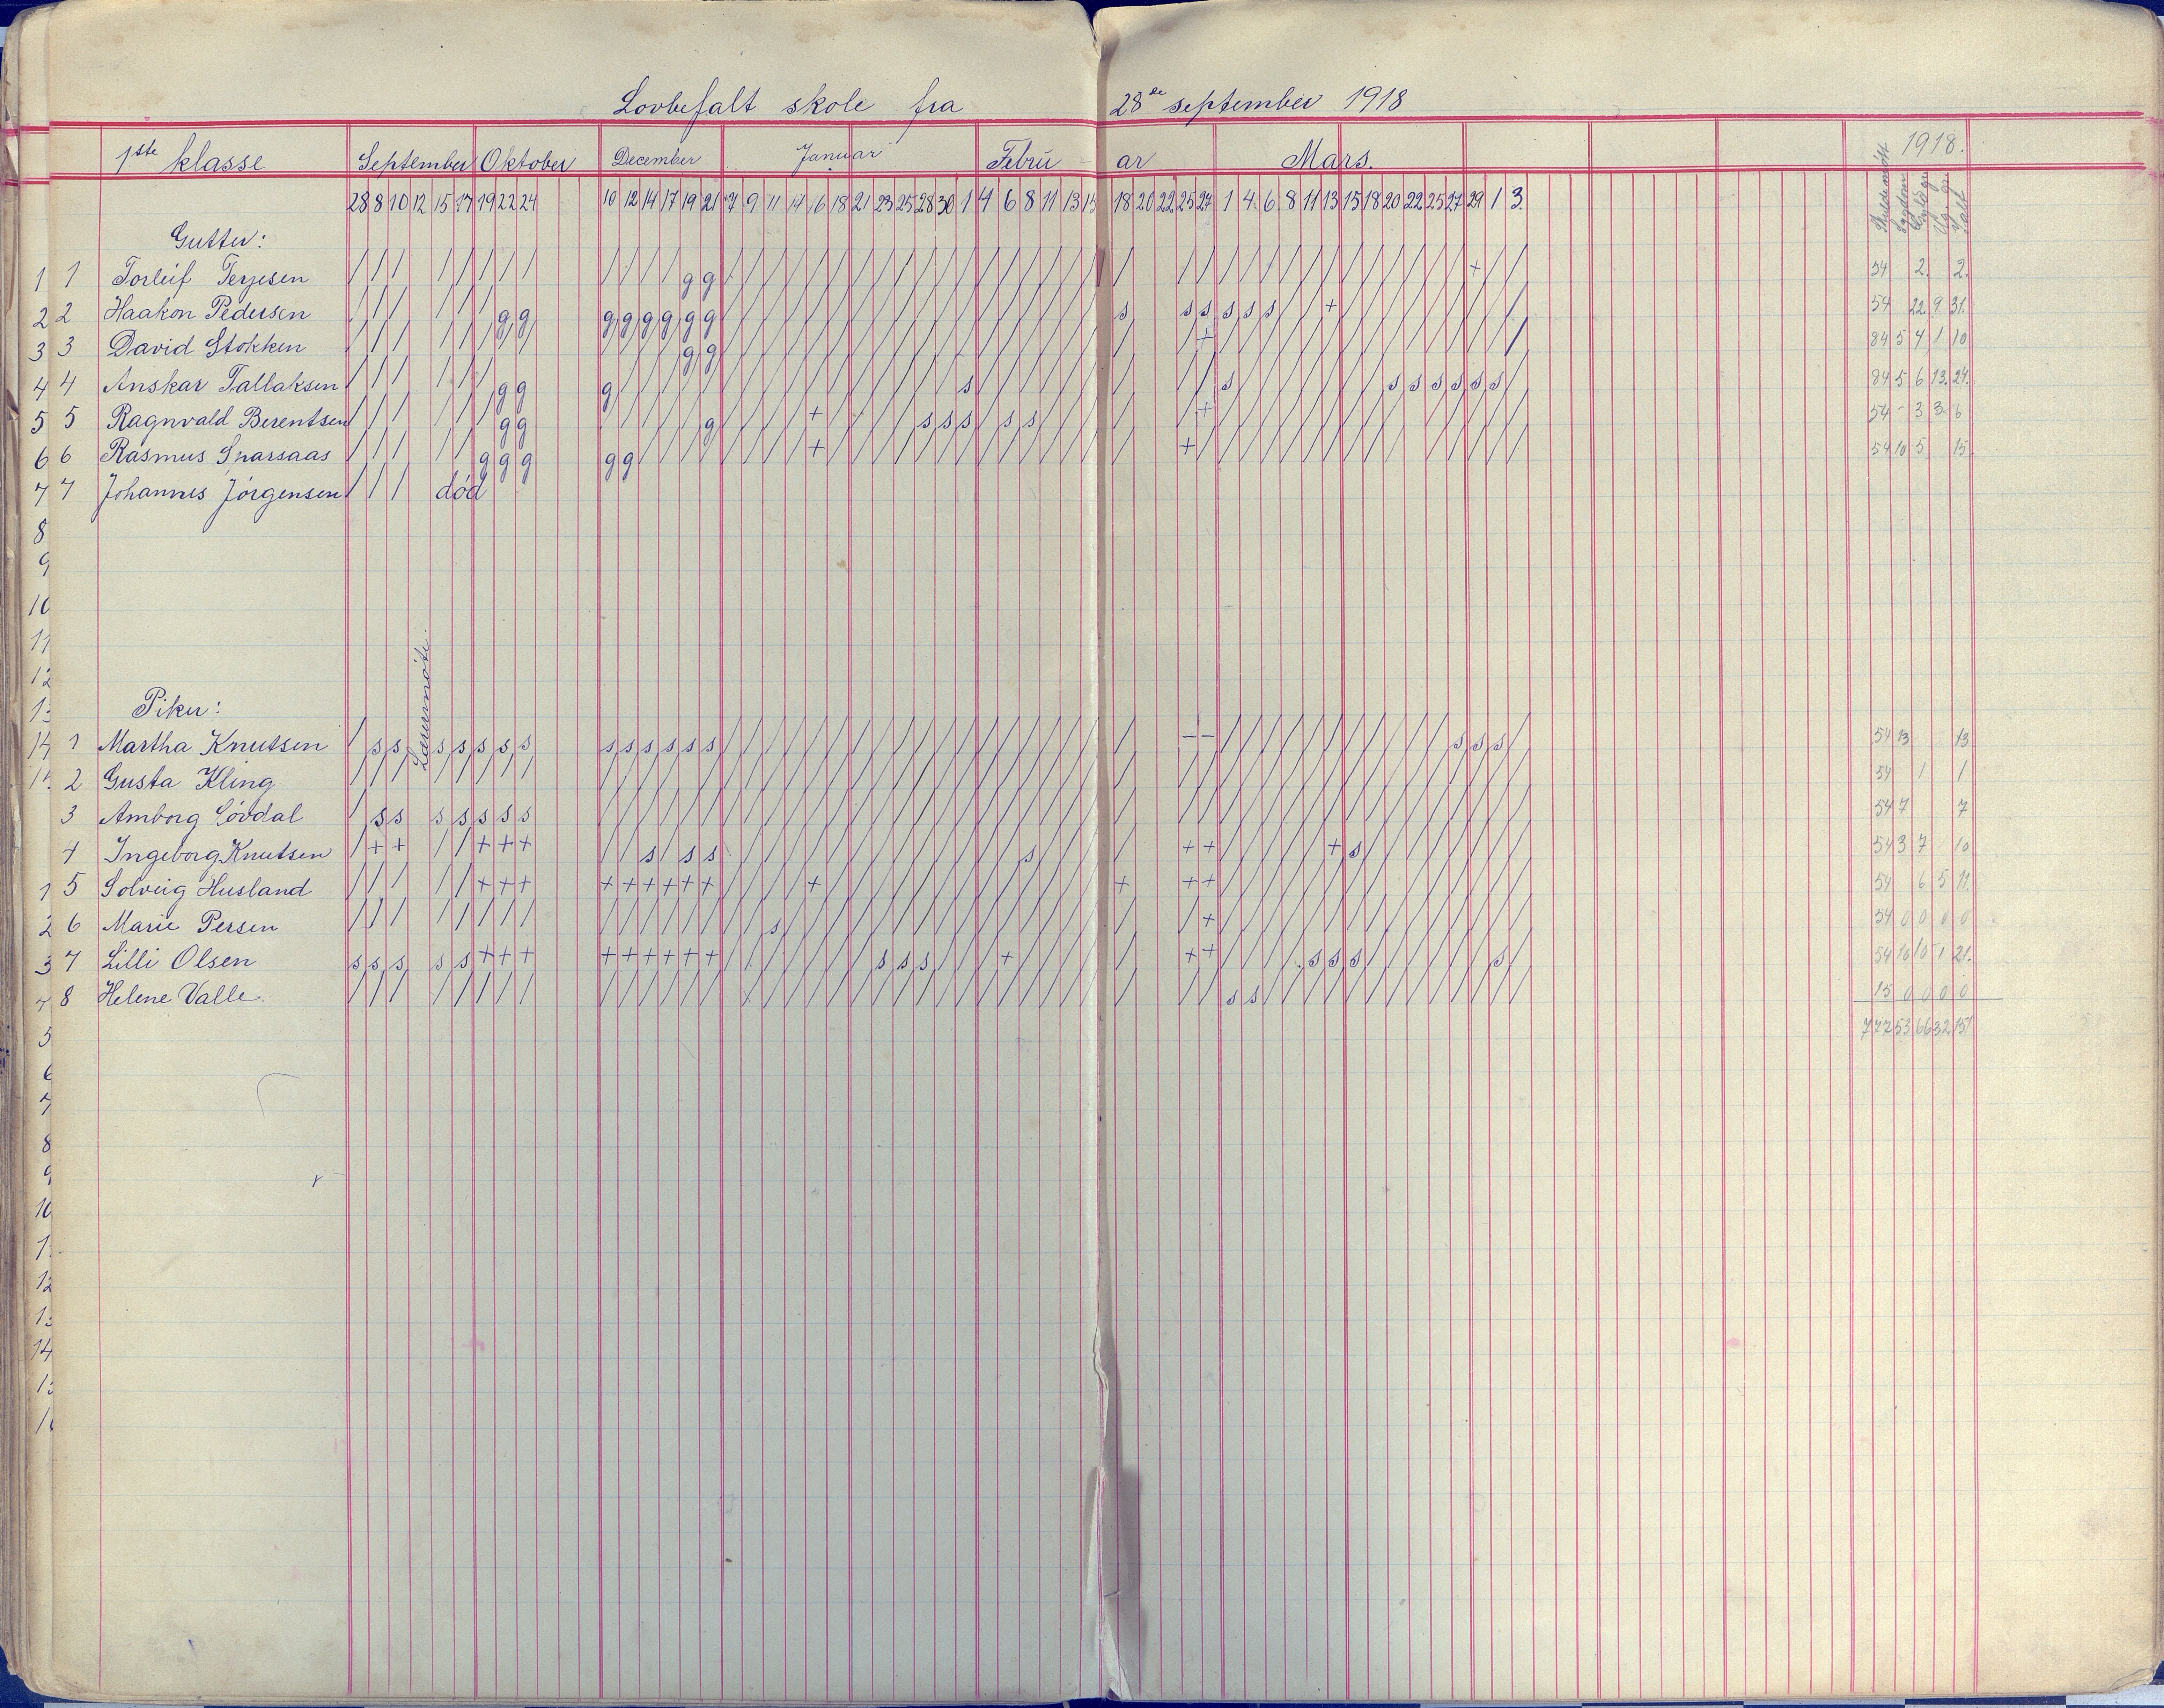 Lovbefalt skole fra 28de september 1918
1ste klasse September Oktober December Januar Februar Mars. 1918.
28 8 10 12 15 17 19 22 24 10 12 14 17 19 21 7 9 11 14 16 18 21 23 25 28 30 1 4 6 8 11 13 15 18 20 22 25 27 1 4 6 8 11 13 15 18 20 22 25 27 29 1 3.
Gutter:
1 1 Torleif Terjesen / / / / / / / / / / / / g g + 54 2 2
2 2 Haakon Pedersen / / / / / / g g g g g g g g s s s s s s + 54 22 9 31
3 3 David Stokken / / / / / / / / g g + 84 5 4 1 10
4 4 Anskar Tallaksen / / / / / / g g g s s s s s s s s 84 5 6 13 24
5 5 Ragnvald Berentsen / / / / / / g g g + s s s s s + 54 - 3 3 6
6 6 Rasmus Snarsaas / / / / / g g g g g + + 54 10 5 15
7 7 Johannes Jörgensen / / / död
8
9
10
11
12
Lærermöte.
Piker:
14 1 Martha Knutsen / s s s s s s s s s s s s s - - s s s 54 13 13
2 Gusta Kling / / / / / / / / 54 1 1
3 Amborg Lövdal / s s s s s s s 54 7 7
4 Ingeborg Knutsen / + + / / + + + s s s s + + + s 54 3 7 10
1 5 Solveig Husland / / / / / + + + + + + + + + + + + + 54 6 5 11
2 6 Marie Persen / / / / / / / / s + 54 0 0 0 0
3 7 Lilli Olsen s s s s s + + + + + + + + + s s s + + + s s s s 54 10 10 1 21
4 8 Helene Valle. / / / / / / / / s s 15 0 0 0 0
5 777 53 66 32 151
6
7
8
9
10
1
12
13
14